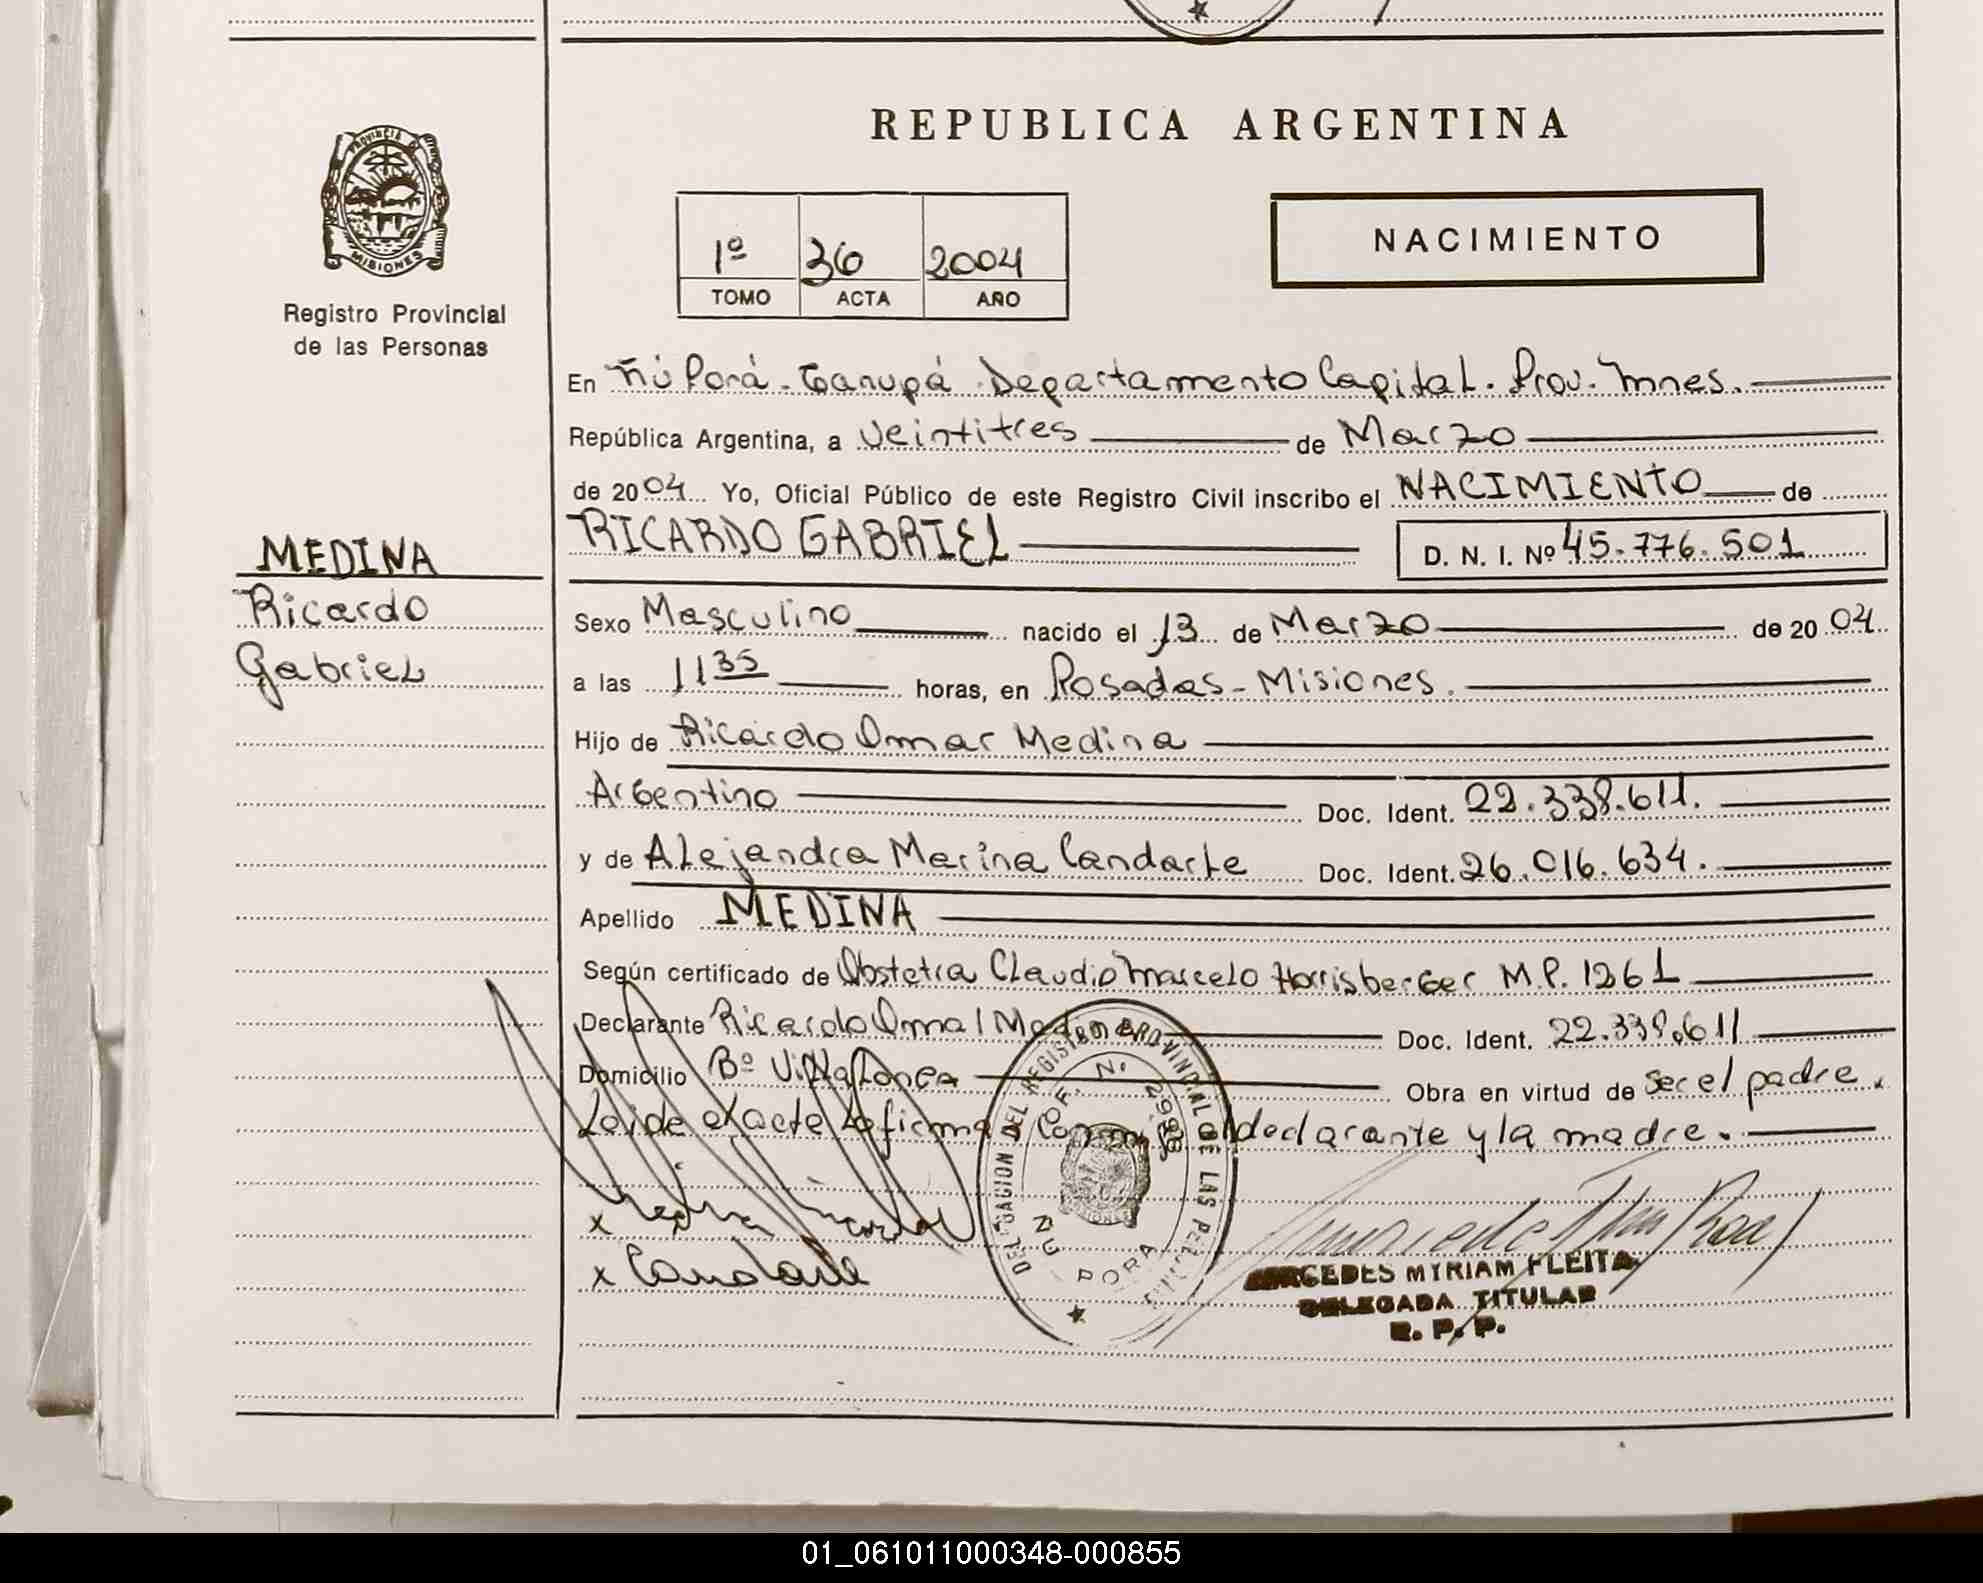 REPUBLICA ARGENTINA
PROVINCIA DE
MISIONES
Registro Provincial
de las Personas
1º 36 2004
TOMO ACTA AÑO
NACIMIENTO
En Ñú Porá - Garupá - Departamento Capital. Prov. Mnes.
República Argentina, a Veintitres de Marzo
de 2004 Yo, Oficial Público de este Registro Civil inscribo el NACIMIENTO de
RICARDO GABRIEL D. N. I. Nº 45.776.501
MEDINA
Ricardo
Gabriel
Sexo Masculino nacido el 13 de Marzo de 2004
a las 11 35 horas, en Posadas - Misiones.
Hijo de Ricardo Omar Medina
Argentino Doc. Ident. 22.338.611.
y de Alejandra Marina Candarle Doc. Ident. 26.016.634.
Apellido MEDINA
Según certificado de Obstetra Claudio Marcelo Horrisberger M.P. 1261
Declarante Ricardo Omar Medina Doc. Ident. 22.338.611
Domicilio Bº Villalonga Obra en virtud de ser el padre.
Leida el acta la firman Conmigo el declarante y la madre.
DELEGACION DEL REGISTRO PROVINCIAL DE LAS PERSONAS
OF. Nº 2998
ÑU PORA
x Medina Ricardo
x Candarle
MERCEDES MYRIAM FLEITA
DELEGADA TITULAR
R. P. P.
01_061011000348-000855